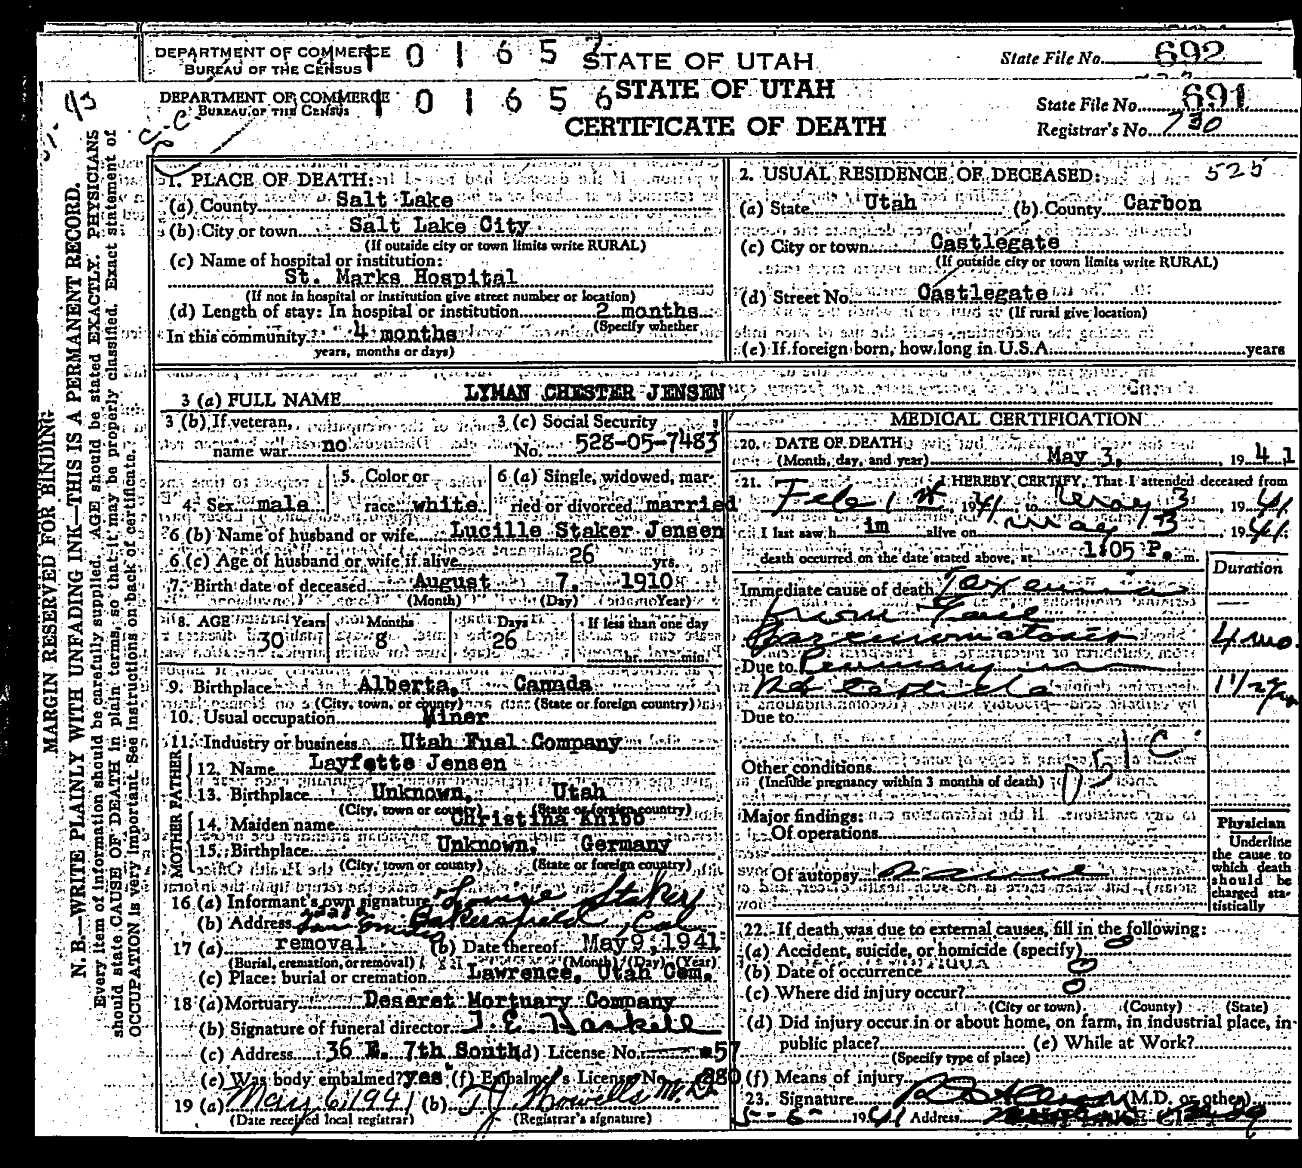 DEPARTMENT OF COMMERCE
BUREAU OF THE CENSUS
4101652
STATE OF UTAH
State File No. 692
DEPARTMENT OF COMMERCE
BUREAU OF THE CENSUS
101656
STATE OF UTAH
CERTIFICATE OF DEATH
State File No. 691
Registrar's No. 730
MARGIN RESERVED FOR BINDING
N. B.—WRITE PLAINLY WITH UNFADING INK—THIS IS A PERMANENT RECORD.
Every item of information should be carefully supplied. AGE should be stated EXACTLY. PHYSICIANS
should state CAUSE OF DEATH in plain terms, so that it may be properly classified. Exact statement of
OCCUPATION is very important. See instructions on back of certificate.
1. PLACE OF DEATH:
(a) County Salt Lake
(b) City or town Salt Lake City
(If outside city or town limits write RURAL)
(c) Name of hospital or institution:
St. Marks Hospital
(If not in hospital or institution give street number or location)
(d) Length of stay: In hospital or institution 2 months
(Specify whether
In this community 4 months
years, months or days)
2. USUAL RESIDENCE OF DECEASED: 525
(a) State Utah (b) County Carbon
(c) City or town Castlegate
(If outside city or town limits write RURAL)
(d) Street No. Castlegate
(If rural give location)
(e) If foreign born, how long in U.S.A. years
3 (a) FULL NAME LYMAN CHESTER JENSEN
3 (b) If veteran, name war no
3 (c) Social Security No. 528-05-7483
4. Sex male
5. Color or race white
6 (a) Single, widowed, married or divorced married
6 (b) Name of husband or wife Lucille Staker Jensen
6 (c) Age of husband or wife if alive 26 yrs.
7. Birth date of deceased August 7, 1910
(Month) (Day) (Year)
8. AGE Years Months Days If less than one day
30 8 26 hr. min.
9. Birthplace Alberta, Canada
(City, town, or county) (State or foreign country)
10. Usual occupation Miner
11. Industry or business Utah Fuel Company
FATHER
12. Name Layfette Jensen
13. Birthplace Unknown, Utah
(City, town or county) (State or foreign country)
MOTHER
14. Maiden name Christina Knibb
15. Birthplace Unknown, Germany
(City, town or county) (State or foreign country)
16 (a) Informant's own signature Staker
(b) Address Bakersfield, Cal
17 (a) removal (b) Date thereof May 9 1941
(Burial, cremation, or removal) (Month) (Day) (Year)
(c) Place: burial or cremation Lawrence, Utah Cem.
18 (a) Mortuary Deseret Mortuary Company
(b) Signature of funeral director J. E. Haskell
(c) Address 36 E. 7th South (d) License No. 57
(e) Was body embalmed? yes (f) Embalmer's License No. 280
19 (a) May 6, 1941 (b) T J Howells M.D.
(Date received local registrar) (Registrar's signature)
MEDICAL CERTIFICATION
20. DATE OF DEATH
(Month, day, and year) May 3, 1941
21. I HEREBY CERTIFY, That I attended deceased from
Feb 1st, 1941, to May 3, 1941.
I last saw him alive on May 3, 1941.
death occurred on the date stated above, at 1:05 P. m.
Duration
Immediate cause of death Toxemia
from Gen'l
Carcinomatosis 4 mo.
Due to Primary in
Rt testicle 1 1/2 yr
Due to
Other conditions
(Include pregnancy within 3 months of death)
051C
Major findings:
Of operations
Of autopsy
Physician
Underline the cause to which death should be charged statistically
22. If death was due to external causes, fill in the following:
(a) Accident, suicide, or homicide (specify) 0
(b) Date of occurrence 0
(c) Where did injury occur? 0
(City or town) (County) (State)
(d) Did injury occur in or about home, on farm, in industrial place, in public place? (e) While at Work?
(Specify type of place)
(f) Means of injury
23. Signature (M.D. or other)
5-5-1941 Address